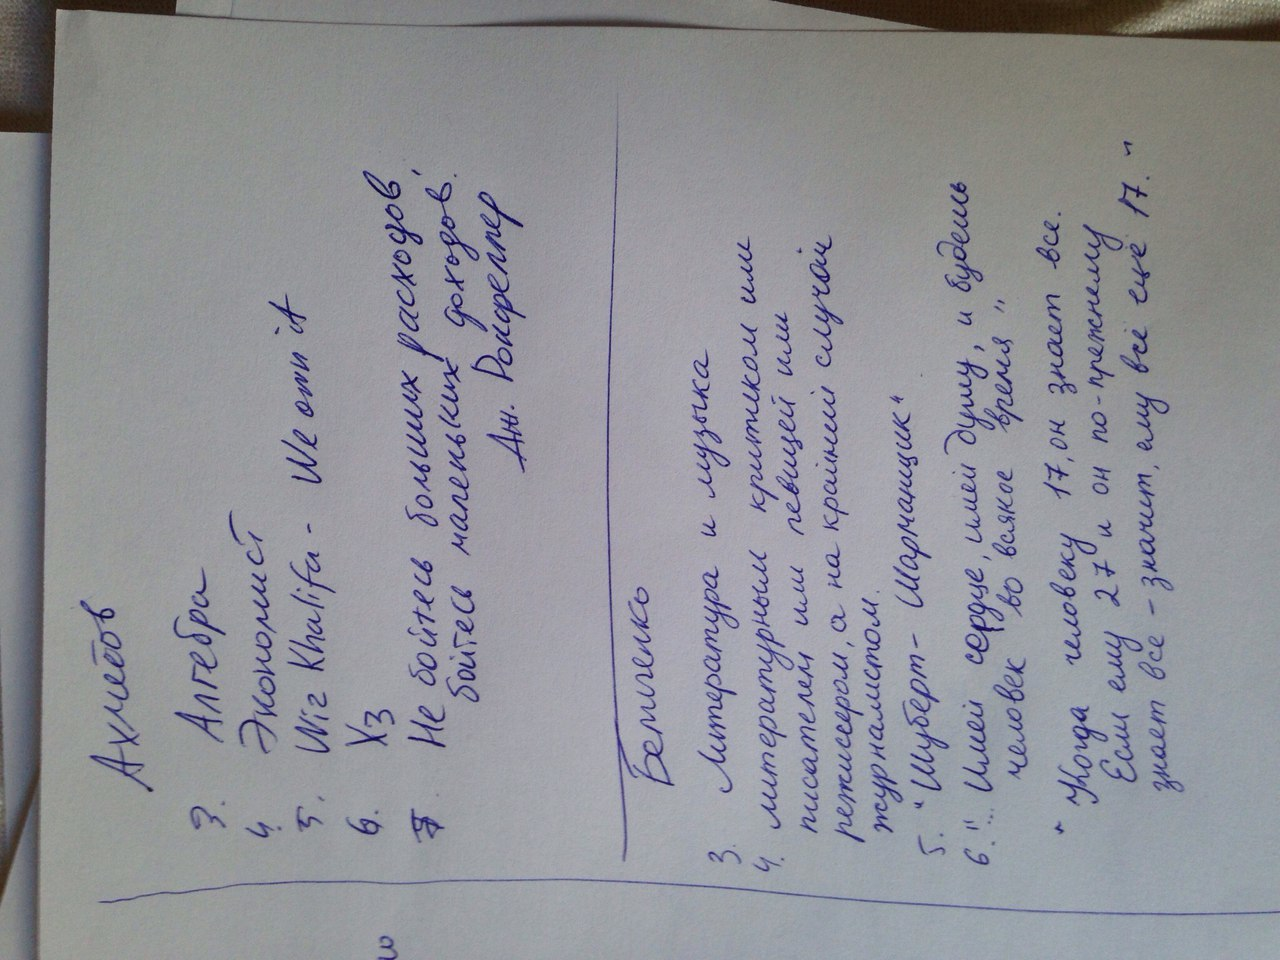 Ахметов
3. Алгебра
4. Экономист
5. Wiz Khalifa - We own it
6. ХЗ
7. Не бойтесь больших расходов,
бойтесь маленьких доходов.
Дж. Рокфеллер
Бетиченко
3. Литература и музыка
4. литературным критиком или
писателем или певицей или
режиссером, а на крайний случай
журналистом.
5. "Шуберт - Шарманщик"
6. "... Имей сердце, имей душу, и будешь
человек во всякое время"
"Когда человеку 17, он знает все.
Если ему 27 и он по-прежнему
знает все - значит, ему всё ещё 17."